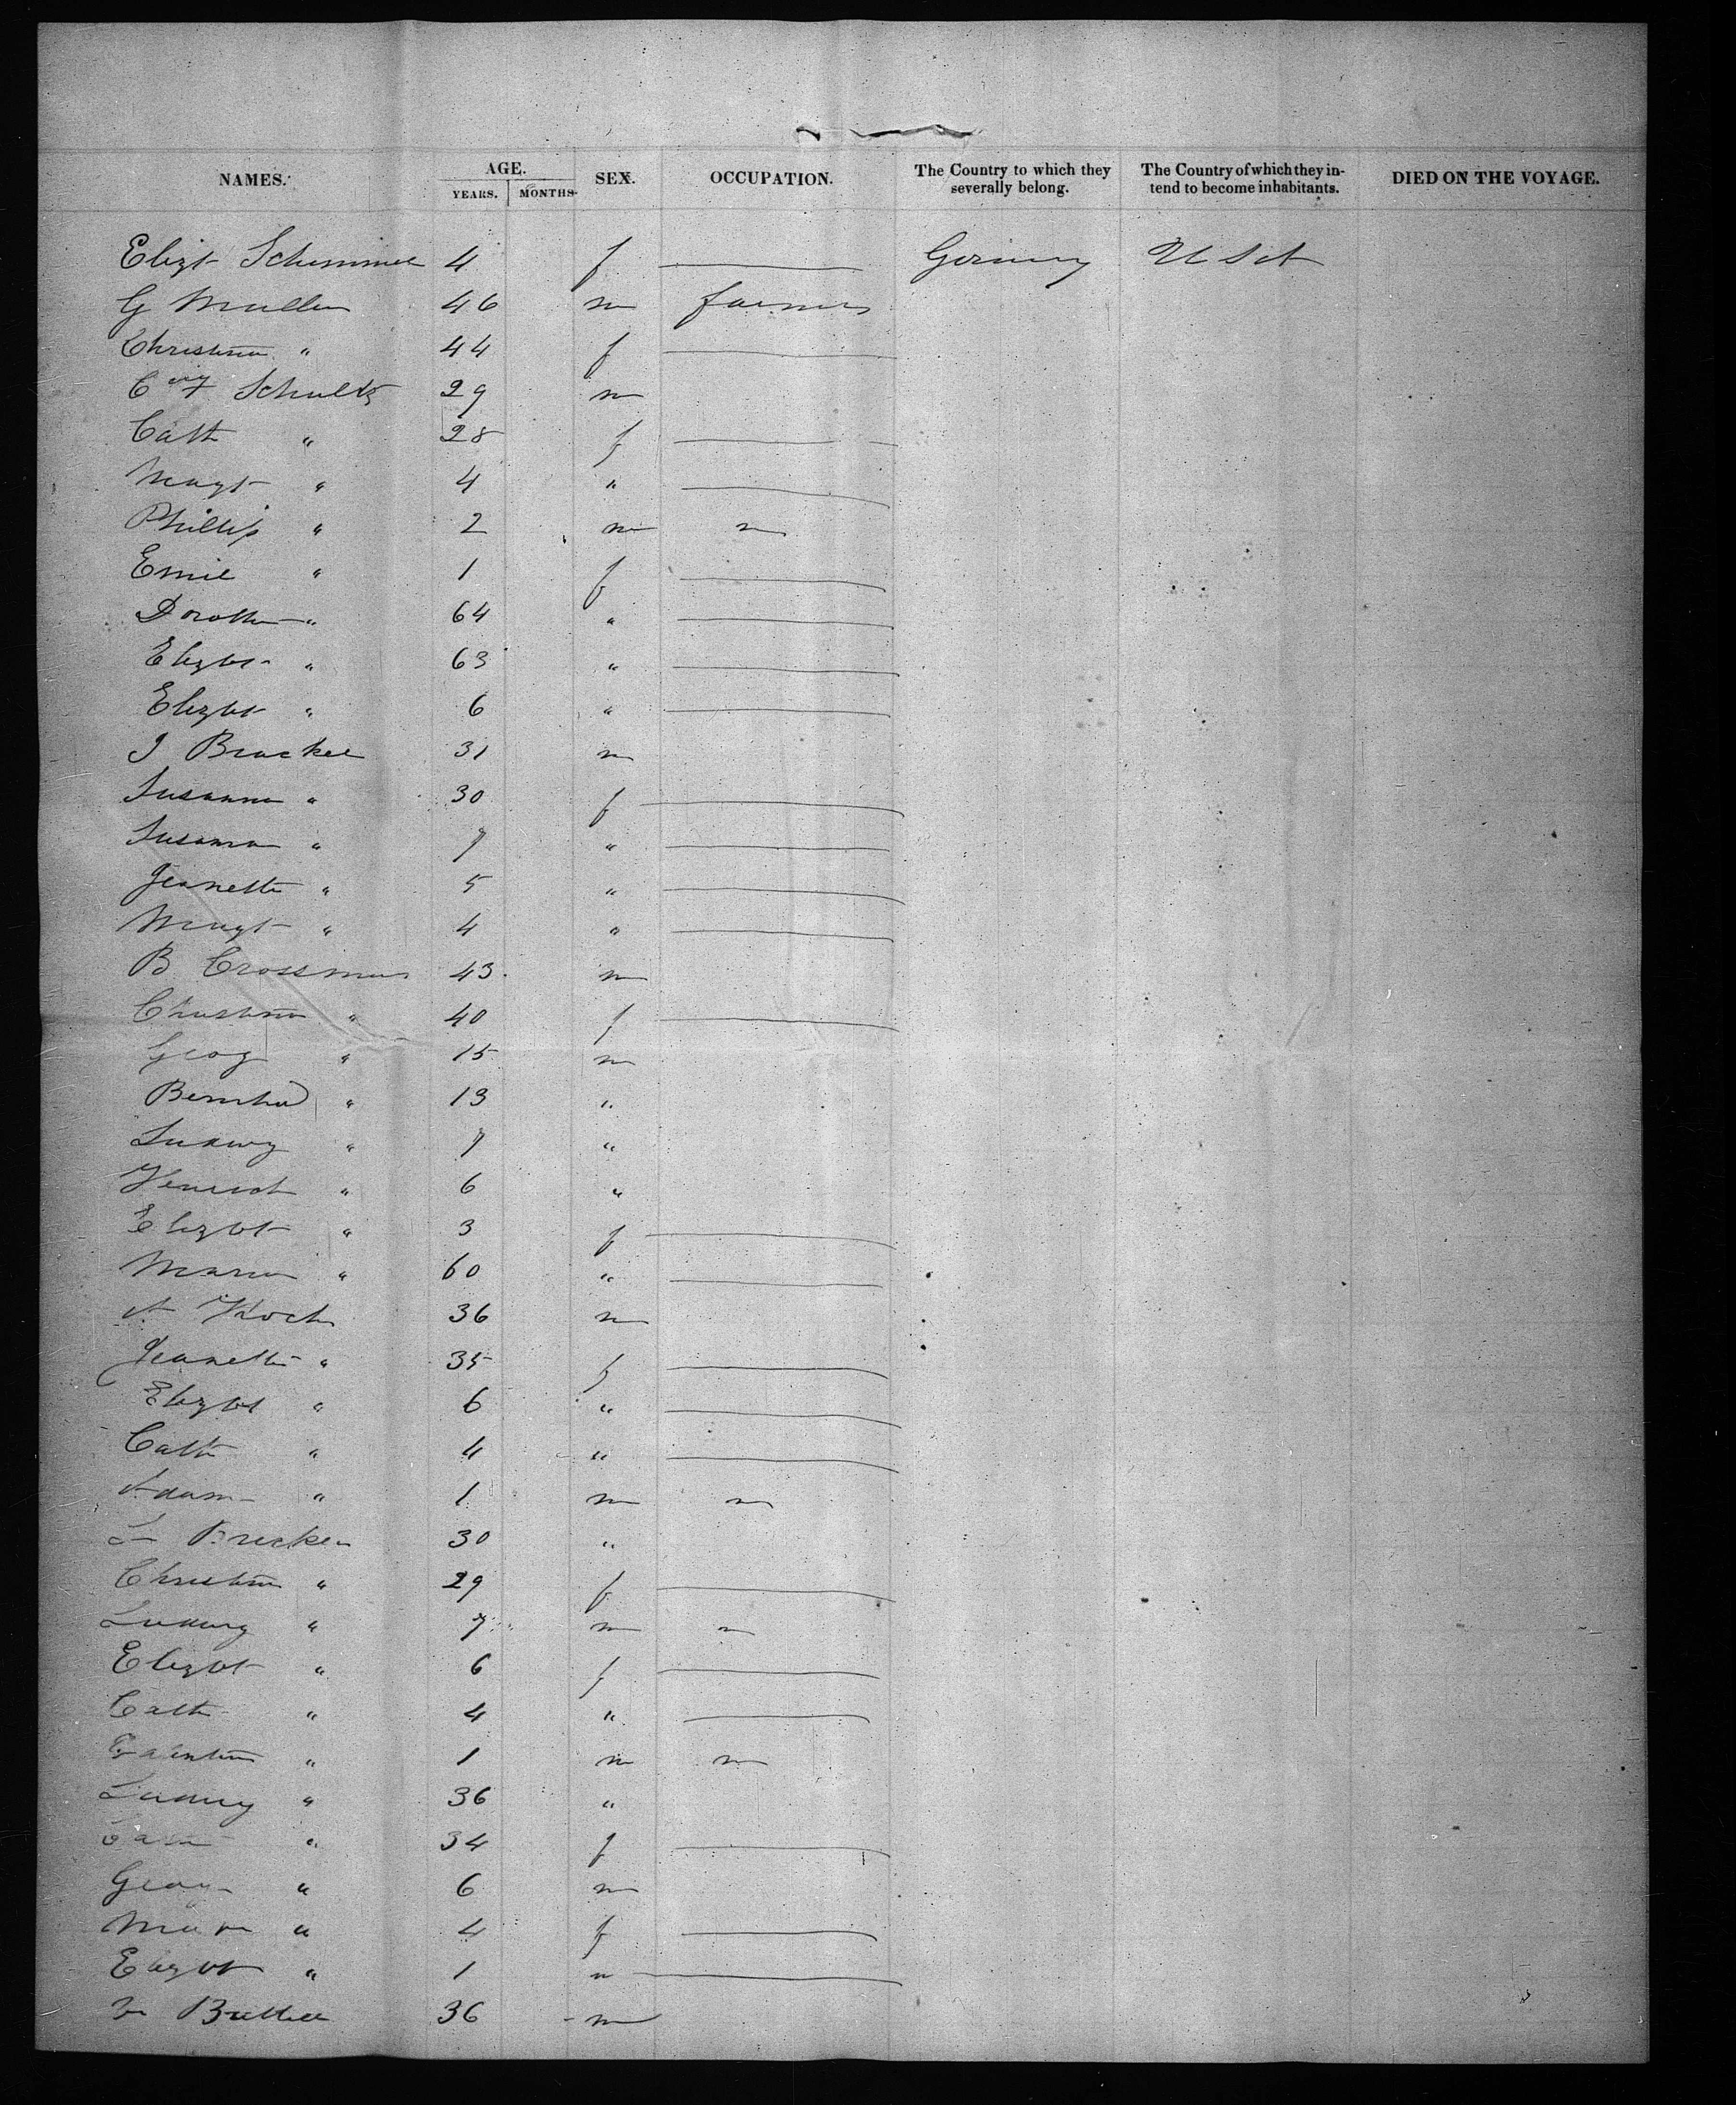 NAMES. AGE. YEARS. MONTHS. SEX. OCCUPATION. The Country to which they severally belong. The Country of which they intend to become inhabitants. DIED ON THE VOYAGE.
Elizt Schimmel 4 f Germany USA
G Muller 46 m farmer
Christina " 44 f
Schultz 29 m
Cath " 28 f
Magt " 4 "
Phillip " 2 m
Emil " 1 f
Dorothe " 64 "
Elizbt " 63 "
Elizbt " 6 "
J Brackel 31 m
Susanna " 30 f
Susanna " 7 "
Jeanette " 5 "
Magt " 4 "
B Crossman 43 m
Christina " 40 f
Georg " 15 m
Bernhd " 13 "
Ludwig " 7 "
Heinrich " 6 "
Elizbt " 3 f
Maria " 60 "
A Koch 36 m
Jeanette " 35 f
Elizbt " 6 "
Cath " 4 "
Adam " 1 m
L Brecker 30 "
Christina " 29 f
Ludwig " 7 m
Elizbt " 6 f
Cath " 4 "
Valentin " 1 m
Ludwig " 36 "
Cath " 34 f
Georg " 6 m
Mar " 4 f
Elizbt " 1 "
Buttell 36 m